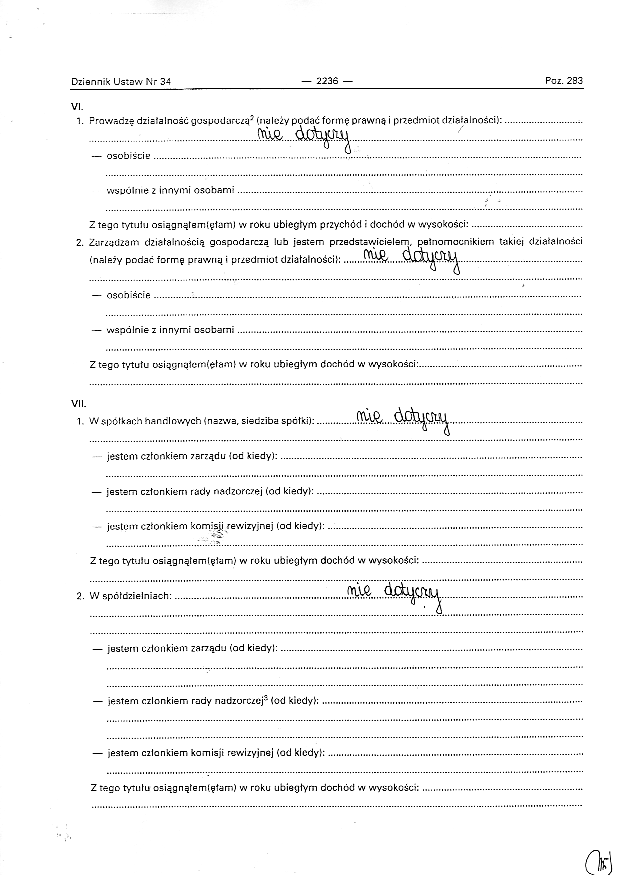 Dziennik Ustaw Nr 34 — 2236 — Poz. 283
VI.
1. Prowadzę działalność gospodarczą² (należy podać formę prawną i przedmiot działalności):
nie dotyczy
— osobiście
wspólnie z innymi osobami
Z tego tytułu osiągnąłem(ęłam) w roku ubiegłym przychód i dochód w wysokości:
2. Zarządzam działalnością gospodarczą lub jestem przedstawicielem, pełnomocnikiem takiej działalności
(należy podać formę prawną i przedmiot działalności): nie dotyczy
— osobiście
— wspólnie z innymi osobami
Z tego tytułu osiągnąłem(ęłam) w roku ubiegłym dochód w wysokości:
VII.
1. W spółkach handlowych (nazwa, siedziba spółki): nie dotyczy
— jestem członkiem zarządu (od kiedy):
— jestem członkiem rady nadzorczej (od kiedy):
— jestem członkiem komisji rewizyjnej (od kiedy):
Z tego tytułu osiągnąłem(ęłam) w roku ubiegłym dochód w wysokości:
2. W spółdzielniach: nie dotyczy
— jestem członkiem zarządu (od kiedy):
— jestem członkiem rady nadzorczej³ (od kiedy):
— jestem członkiem komisji rewizyjnej (od kiedy):
Z tego tytułu osiągnąłem(ęłam) w roku ubiegłym dochód w wysokości: